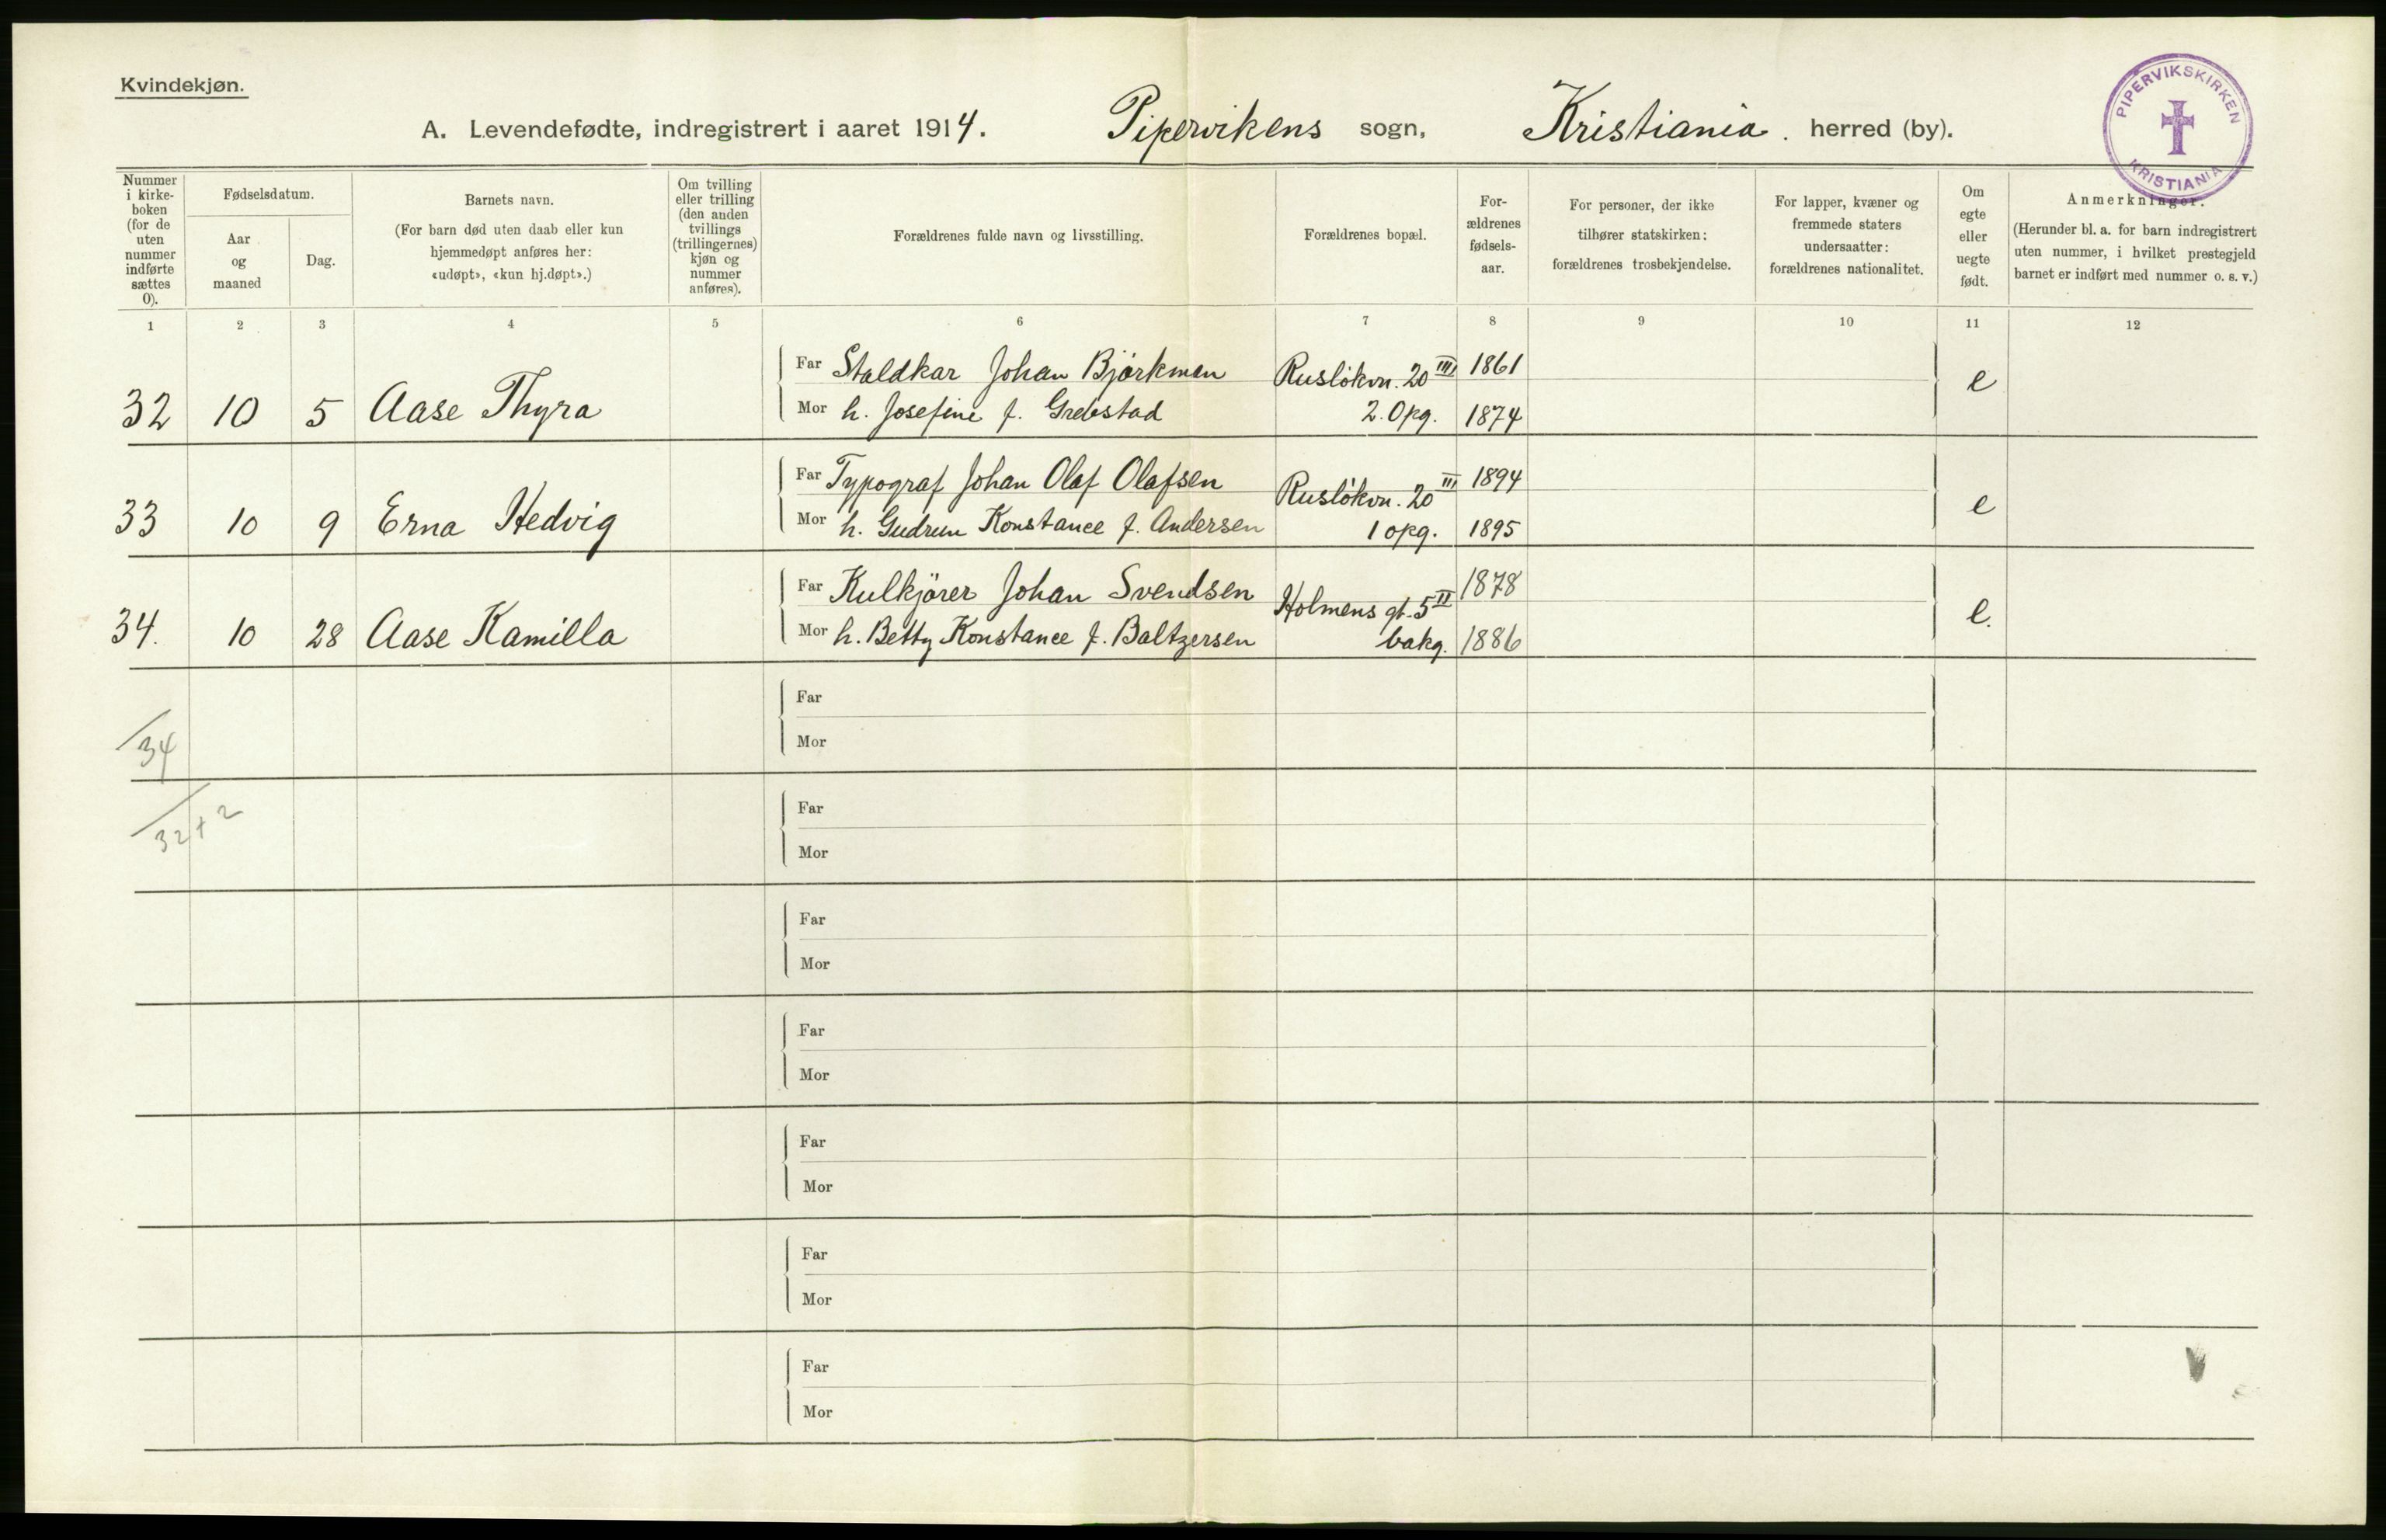 Kvindekjøn.
A. Levendefødte, indregistrert i aaret 1914. Pipervikens sogn, Kristiania. herred (by).
PIPERVIKSKIRKEN KRISTIANIA
Nummer i kirke-boken (for de uten nummer indførte sættes 0).
Fødselsdatum.
Aar og maaned
Dag.
Barnets navn.
(For barn død uten daab eller kun hjemmedøpt anføres her: «udøpt», «kun hj.døpt».)
Om tvilling eller trilling (den anden tvillings (trillingernes) kjøn og nummer anføres).
Forældrenes fulde navn og livsstilling.
Forældrenes bopæl.
For-ældrenes fødsels-aar.
For personer, der ikke tilhører statskirken: forældrenes trosbekjendelse.
For lapper, kvæner og fremmede staters undersaatter: forældrenes nationalitet.
Om egte eller uegte født.
Anmerkninger.
(Herunder bl. a. for barn indregistrert uten nummer, i hvilket prestegjeld barnet er indført med nummer o. s. v.)
1 2 3 4 5 6 7 8 9 10 11 12
Far Staldkar Johan Björkman Ruslökvn. 20 III 1861
32 10 5 Aase Thyra Mor h. Josefine f. Grebstad 2. Opg. 1874 e
Far Typograf Johan Olaf Olafsen Ruslökvn. 20 III 1894
33 10 9 Erna Hedvig Mor h. Gudrun Konstance f. Andersen 1 opg. 1895 e
Far Kulkjörer Johan Svendsen Holmens gt. 5 II 1878
34. 10 28 Aase Kamilla Mor h. Betty Konstance f. Baltzersen bakg. 1886 e.
Far
34
Mor
Far
32+2
Mor
Far
Mor
Far
Mor
Far
Mor
Far
Mor
Far
Mor